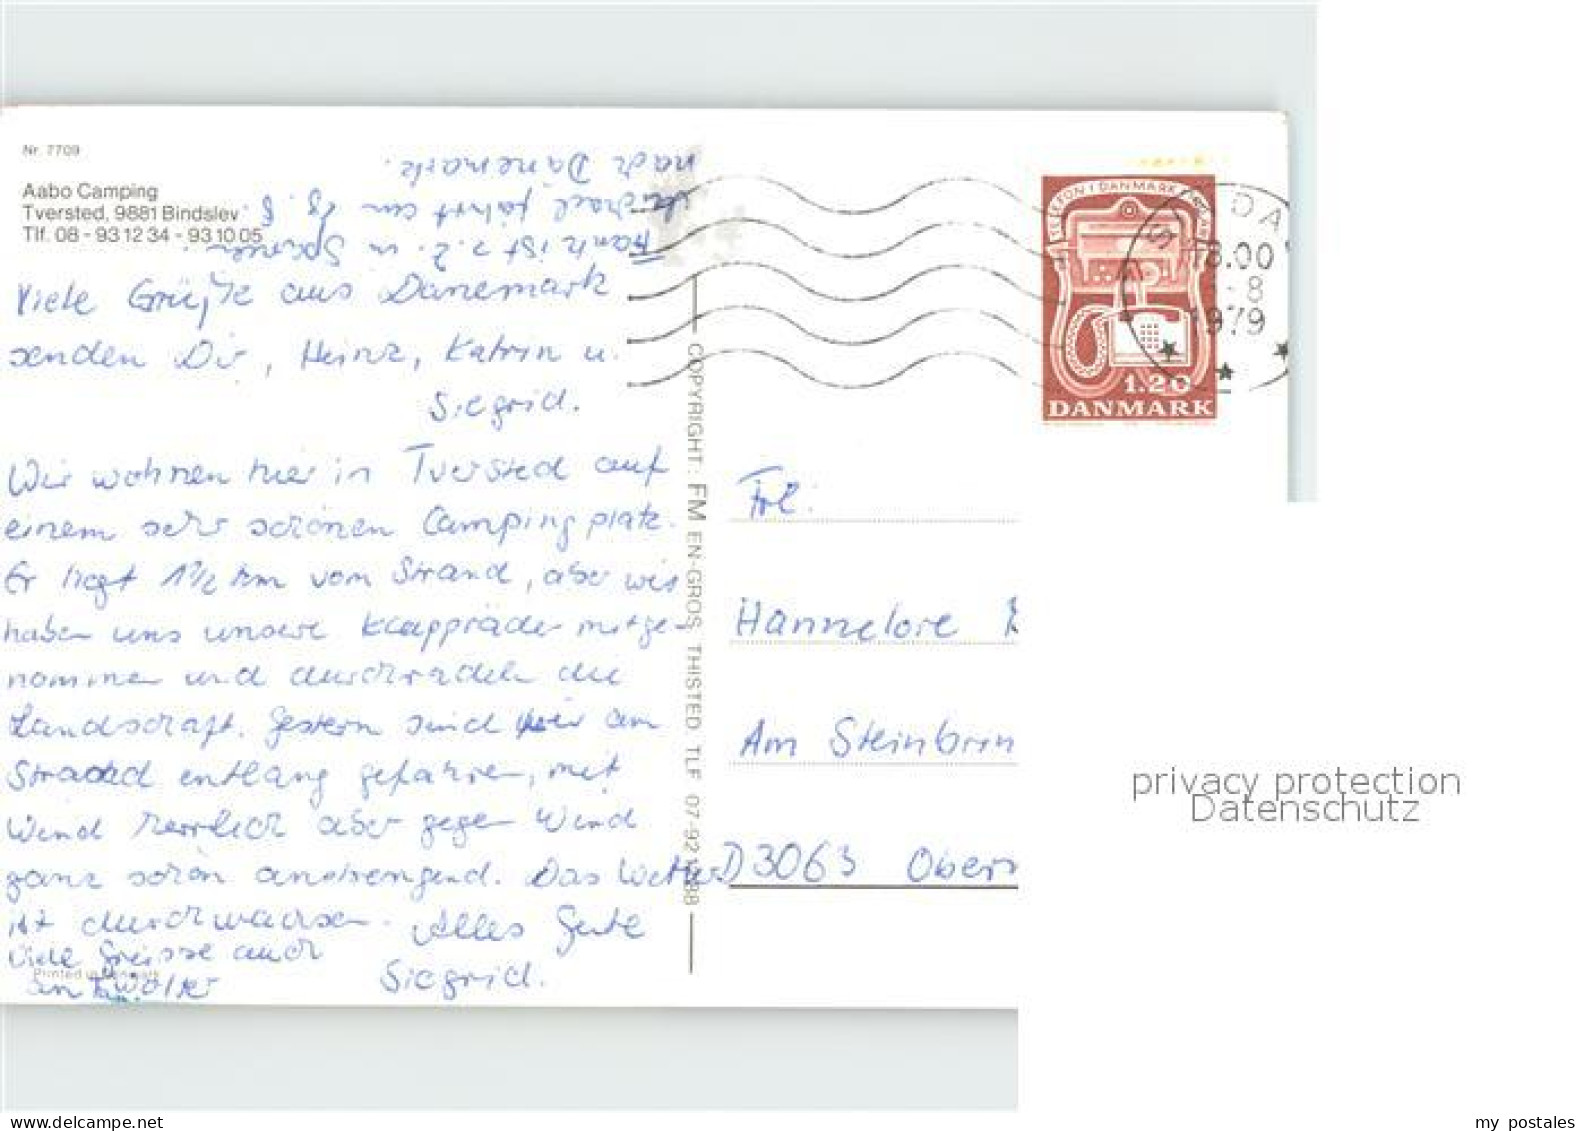 Nr. 7709
Aabo Camping
Tversted, 9881 Bindslev
Tlf. 08 - 93 12 34 - 93 10 05
Frank ist z. Z. in Spanien.
Michael fährt am 28. 8.
nach Dänemark.
Viele Grüße aus Dänemark
senden Dir, Heinz, Katrin u.
Siegrid.
Wir wohnen hier in Tversted auf
einem sehr schönen Campingplatz.
Er liegt 1½ km vom Strand, aber wir
haben uns unsere Klappräder mitge-
nommen und durchradeln die
Landschaft. Gestern sind wir am
Strand entlang gefahren, mit
Wind herrlich aber gegen Wind
ganz schön anstrengend. Das Wetter
ist durchwachsen. Alles Gute
Siegrid.
Viele Grüsse auch
Printed in Denmark
COPYRIGHT: FM EN-GROS, THISTED TLF. 07-92
TELEFON I DANMARK
1.20
DANMARK
18.00
-8
1979
Frl.
Hannelore
Am Steinbrin
D 3063 Obern
privacy protection
Datenschutz
my postales